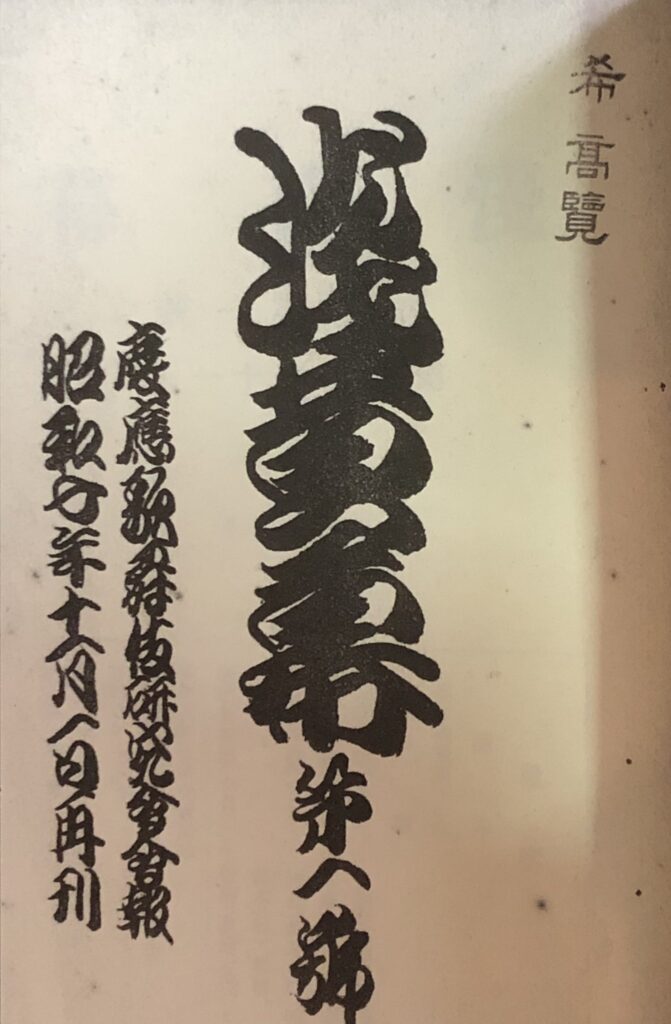 希 高覽
淺黄幕 第一號
慶應歌舞伎研究會會報
昭和七年十一月一日再刊